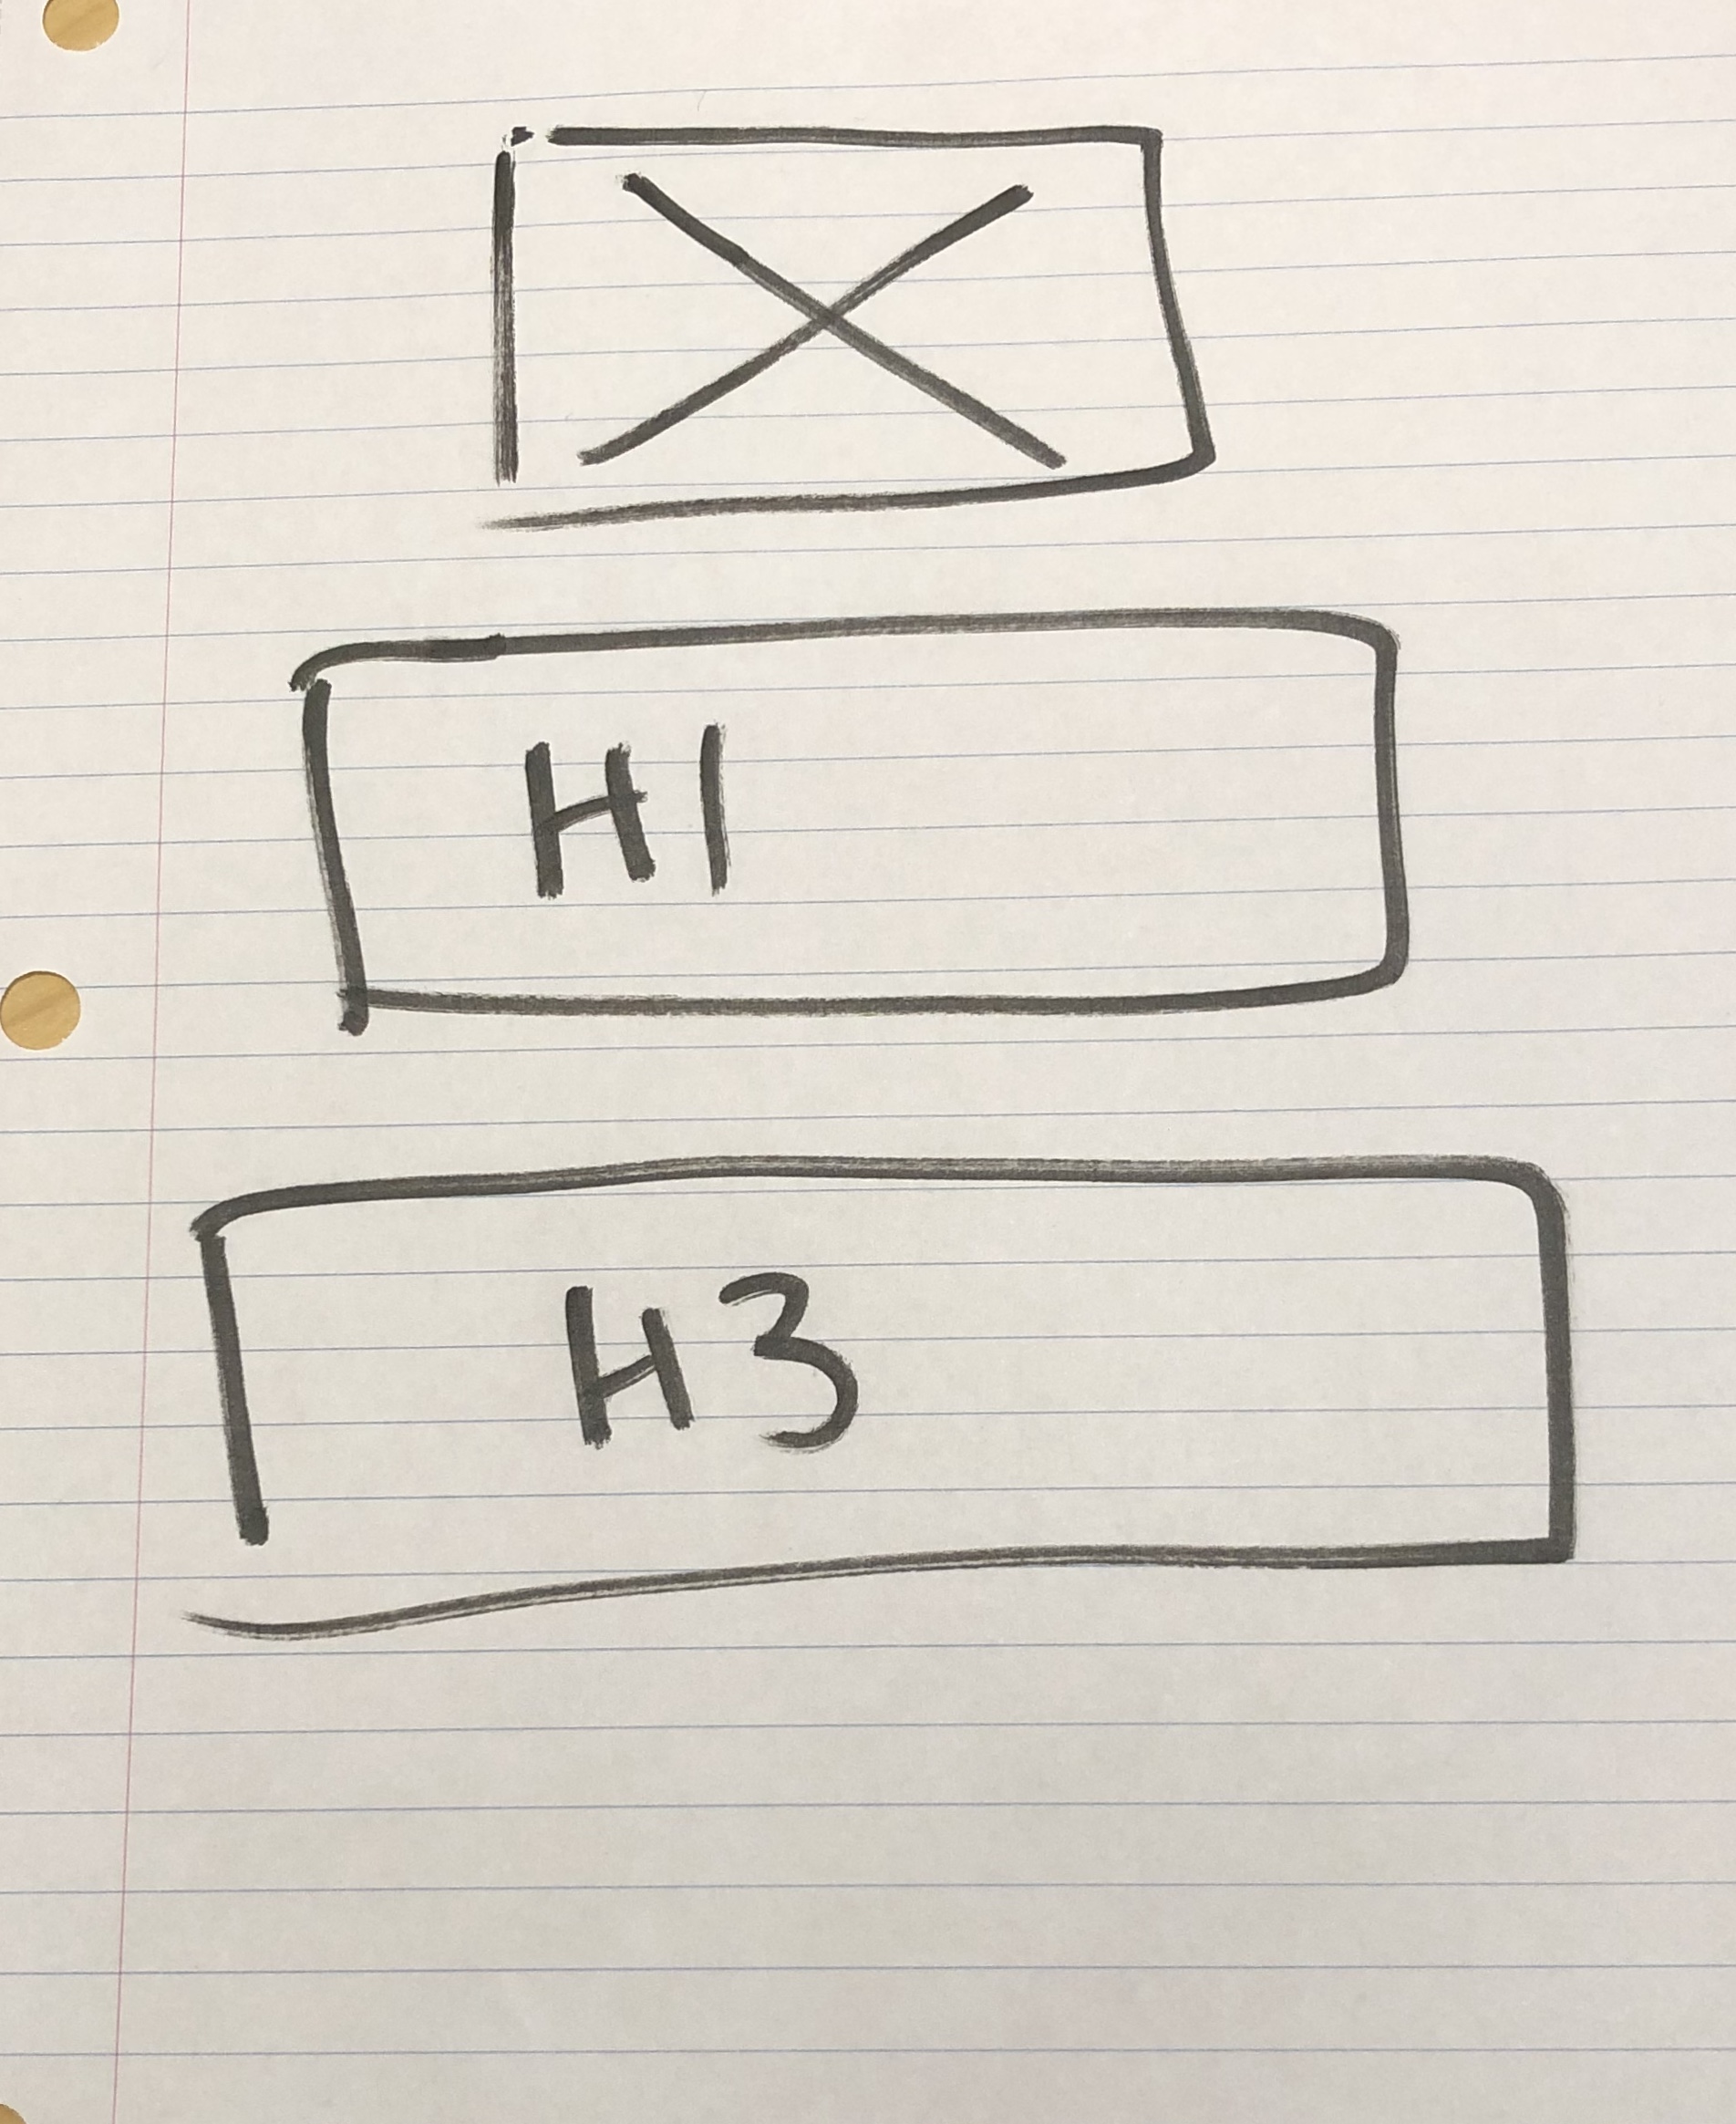 H1
H3